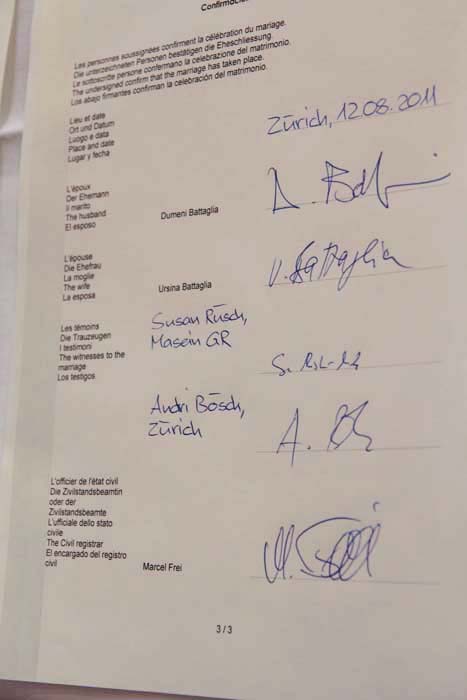 Les personnes soussignées confirment la célébration du mariage.
Die unterzeichneten Personen bestätigen die Eheschliessung.
Le sottoscritte persone confermano la celebrazione del matrimonio.
The undersigned confirm that the marriage has taken place.
Los abajo firmantes confirman la celebración del matrimonio.
Lieu et date
Ort und Datum
Luogo e data
Place and date
Lugar y fecha
Zürich, 12.08.2011
L'époux
Der Ehemann
Il marito
The husband
El esposo
Dumeni Battaglia
L'épouse
Die Ehefrau
La moglie
The wife
La esposa
Ursina Battaglia
U. Battaglia
Les témoins
Die Trauzeugen
I testimoni
The witnesses to the
marriage
Los testigos
Susan Rüsch,
Masein GR
Andri Bösch,
Zürich
L'officier de l'état civil
Die Zivilstandsbeamtin
oder der
Zivilstandsbeamte
L'ufficiale dello stato
civile
The Civil registrar
El encargado del registro
civil
Marcel Frei
3 / 3